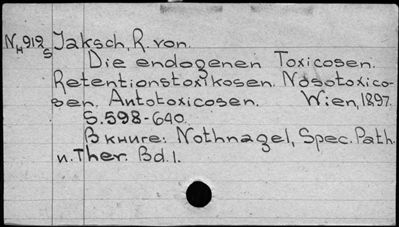 N_H 912 S Jaksch, R. von.
Die endogenen Toxicosen.
Retentionstoxikosen. Nosotoxico-
sen. Autotoxicosen. Wien, 1897.
S. 598-640.
В книге: Nothnagel, Spec. Path.
u. Ther. Bd. 1.